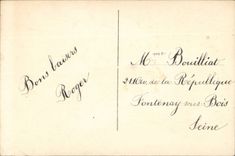 Bons baisers
Roger
Mme Bouilliat
de la République
Fontenay sous Bois
Seine